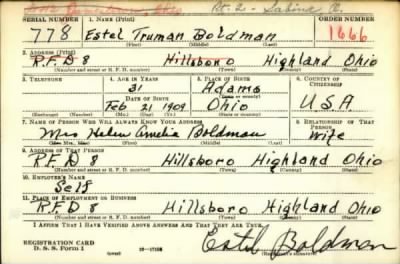 Rt. 2 - Sabina O.
SERIAL NUMBER 1. NAME (Print) ORDER NUMBER
778 Estel Truman Boldman 1666
(First) (Middle) (Last)
2. ADDRESS (Print)
R.F.D 8 Hillsboro Highland Ohio
(Number and street or R. F. D. number) (Town) (County) (State)
3. TELEPHONE 4. AGE IN YEARS 5. PLACE OF BIRTH 6. COUNTRY OF CITIZENSHIP
31 Adams
DATE OF BIRTH (Town or county)
Feb 21 1909 Ohio U.S.A
(Exchange) (No.) (Mo.) (Day) (Yr.) (State or country)
7. NAME OF PERSON WHO WILL ALWAYS KNOW YOUR ADDRESS 8. RELATIONSHIP OF THAT PERSON
Mrs Helen Amelia Boldman Wife
(Mr., Mrs., Miss) (First) (Middle) (Last)
9. ADDRESS OF THAT PERSON
R.F.D 8 Hillsboro Highland Ohio
(Number and street or R. F. D. number) (Town) (County) (State)
10. EMPLOYER'S NAME
Self
11. PLACE OF EMPLOYMENT OR BUSINESS
R.F.D 8 Hillsboro Highland Ohio
(Number and street or R. F. D. number) (Town) (County) (State)
I AFFIRM THAT I HAVE VERIFIED ABOVE ANSWERS AND THAT THEY ARE TRUE.
REGISTRATION CARD
D. S. S. FORM 1 Estel Boldman
(Registrant's signature)